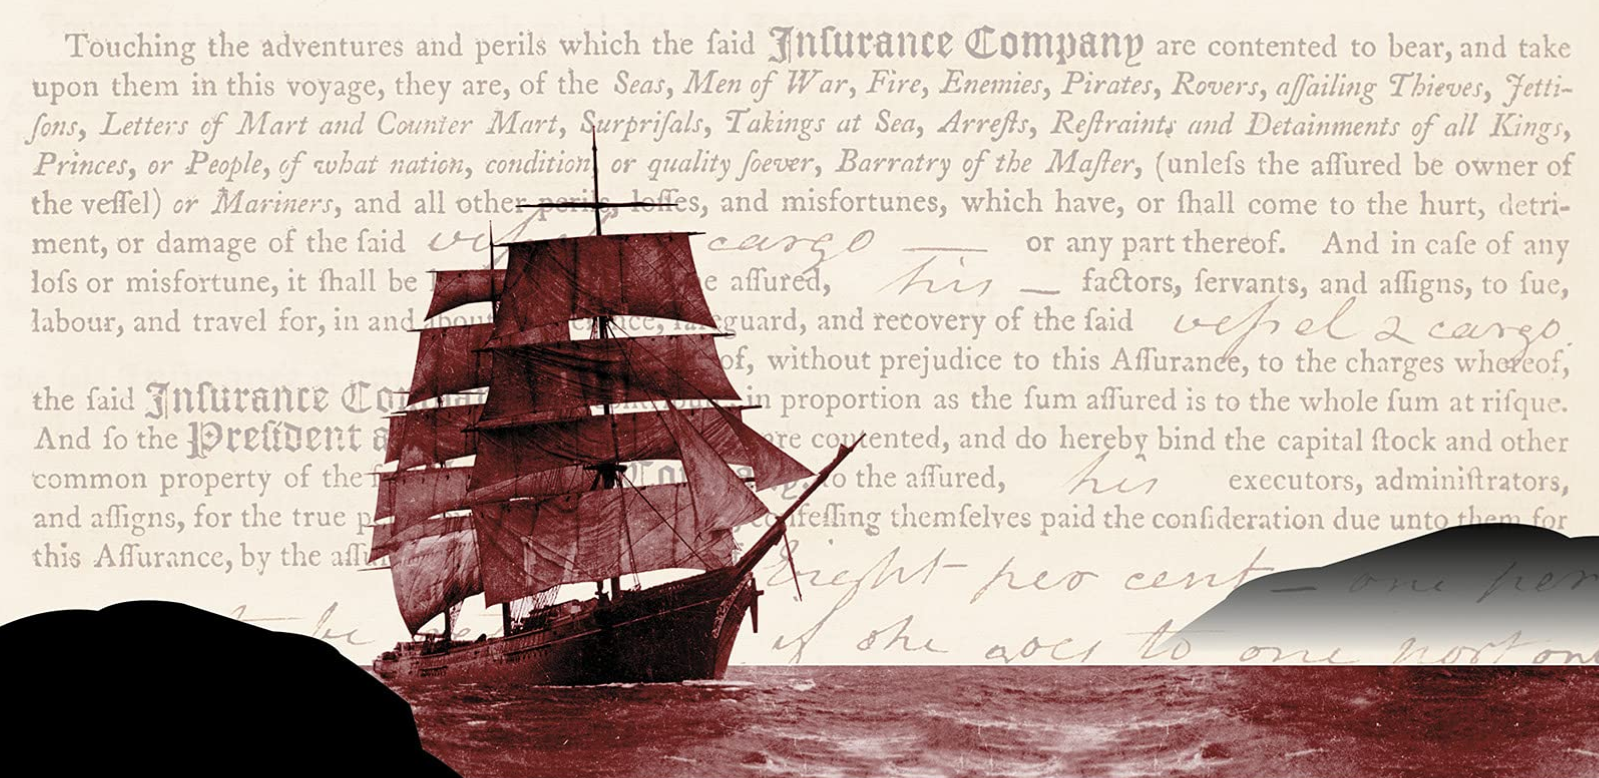 Touching the adventures and perils which the ſaid Inſurance Company are contented to bear, and take
upon them in this voyage, they are, of the Seas, Men of War, Fire, Enemies, Pirates, Rovers, aſſailing Thieves, Jetti-
ſons, Letters of Mart and Counter Mart, Surpriſals, Takings at Sea, Arreſts, Reſtraints and Detainments of all Kings,
Princes, or People, of what nation, condition, or quality ſoever, Barratry of the Maſter, (unleſs the aſſured be owner of
the veſſel) or Mariners, and all other perils, loſſes, and misfortunes, which have, or ſhall come to the hurt, detri-
ment, or damage of the ſaid cargo — or any part thereof. And in caſe of any
loſs or misfortune, it ſhall be aſſured, his — factors, ſervants, and aſſigns, to ſue,
labour, and travel for, in and about guard, and recovery of the ſaid veſsel & cargo
of, without prejudice to this Aſſurance, to the charges whereof,
the ſaid Inſurance in proportion as the ſum aſſured is to the whole ſum at riſque.
And ſo the Preſident are contented, and do hereby bind the capital ſtock and other
common property of the to the aſſured, his executors, adminiſtrators,
and aſſigns, for the true confeſſing themſelves paid the conſideration due unto them for
this Aſſurance, by the Eight per cent — one per
be if she goes to one port